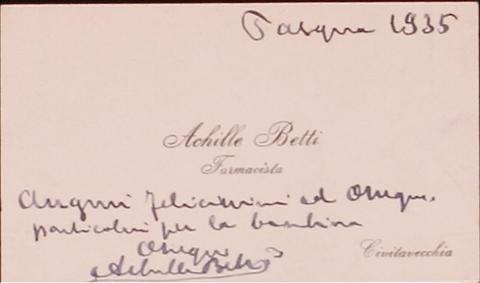 Pasqua 1935
Achille Betti
Farmacista
Auguri felicissimi ed Ossequi
particolari per la bambina
Ossequi
Achille Betti
Civitavecchia